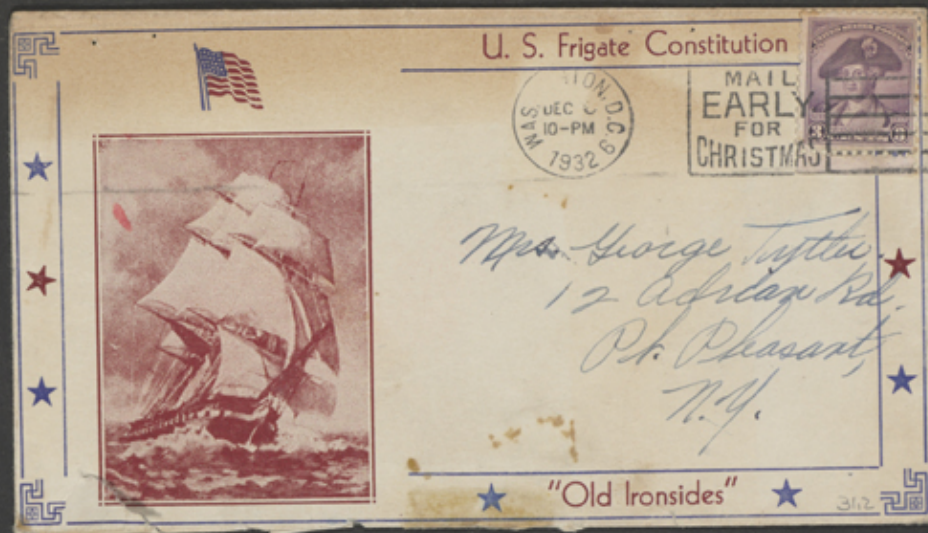 U. S. Frigate Constitution
TON, D.C.
DEC
10-PM
1932
MAIL
EARLY
FOR
CHRISTMAS
3
Mrs. George
12 Adrian Rd.
Pt. Pleasant,
N.Y.
"Old Ironsides"
312